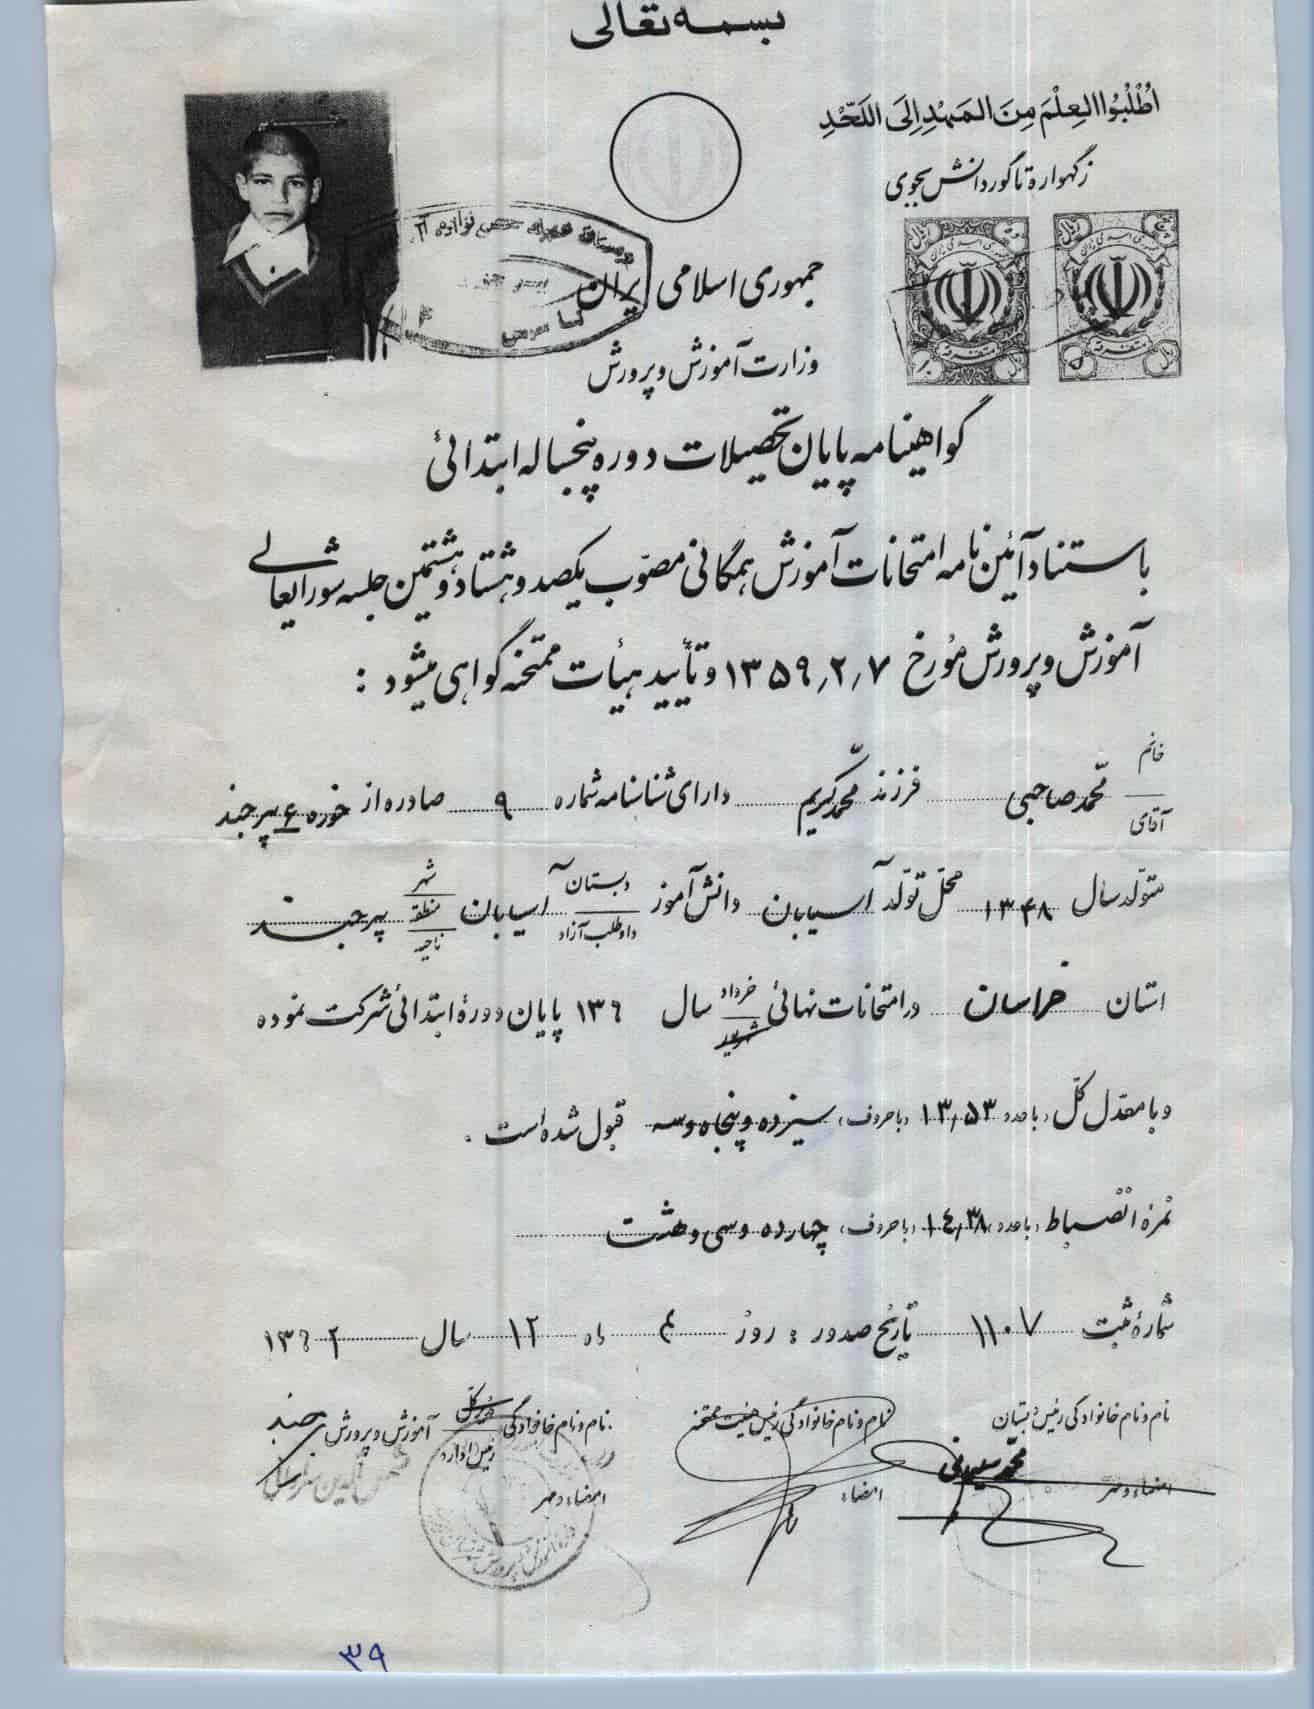 بسمه تعالی
اُطْلُبُوا العِلْمَ مِنَ المَهْدِ اِلَی اللَّحْدِ
ز گهواره تا گور دانش بجوی
جمهوری اسلامی ایران
وزارت آموزش و پرورش
گواهینامه پایان تحصیلات دوره پنجساله ابتدائی
باستناد آئین نامه امتحانات آموزش همگانی مصوّب یکصد و هشتاد و هشتمین جلسه شورایعالی
آموزش و پرورش مورخ ۱۳۵۹٫۲٫۷ و تأیید هیأت ممتحنه گواهی میشود :
خانم
آقای محمّد صاحبی فرزند محمّد کریم دارای شناسنامه شماره ۹ صادره از خوره ۶ بیرجند
متولّد سال ۱۳۴۸ محلّ تولّد آسیابان دانش آموز دبستان آسیابان شهر منطقه ناحیه بیرجند
داوطلب آزاد
استان خراسان در امتحانات نهائی خرداد شهریور سال ۱۳۶ پایان دورهٔ ابتدائی شرکت نموده
و با معدّل کلّ (با عدد) ۱۳٫۵۳ (با حروف) سیزده و پنجاه و سه قبول شده است .
نمره انضباط (با عدد) ۱۴٫۳۸ (با حروف) چهارده و سی و هشت
شمارهٔ ثبت ۱۱۰۷ تاریخ صدور : روز ۴ ماه ۱۲ سال ۱۳۶۲
نام و نام خانوادگی رئیس دبستان نام و نام خانوادگی رئیس هیئت ممتحنه نام و نام خانوادگی مدیر کل رئیس اداره آموزش و پرورش بیرجند
محمّد سلیمانی
امضاء و مهر امضاء امضاء و مهر
۳۹